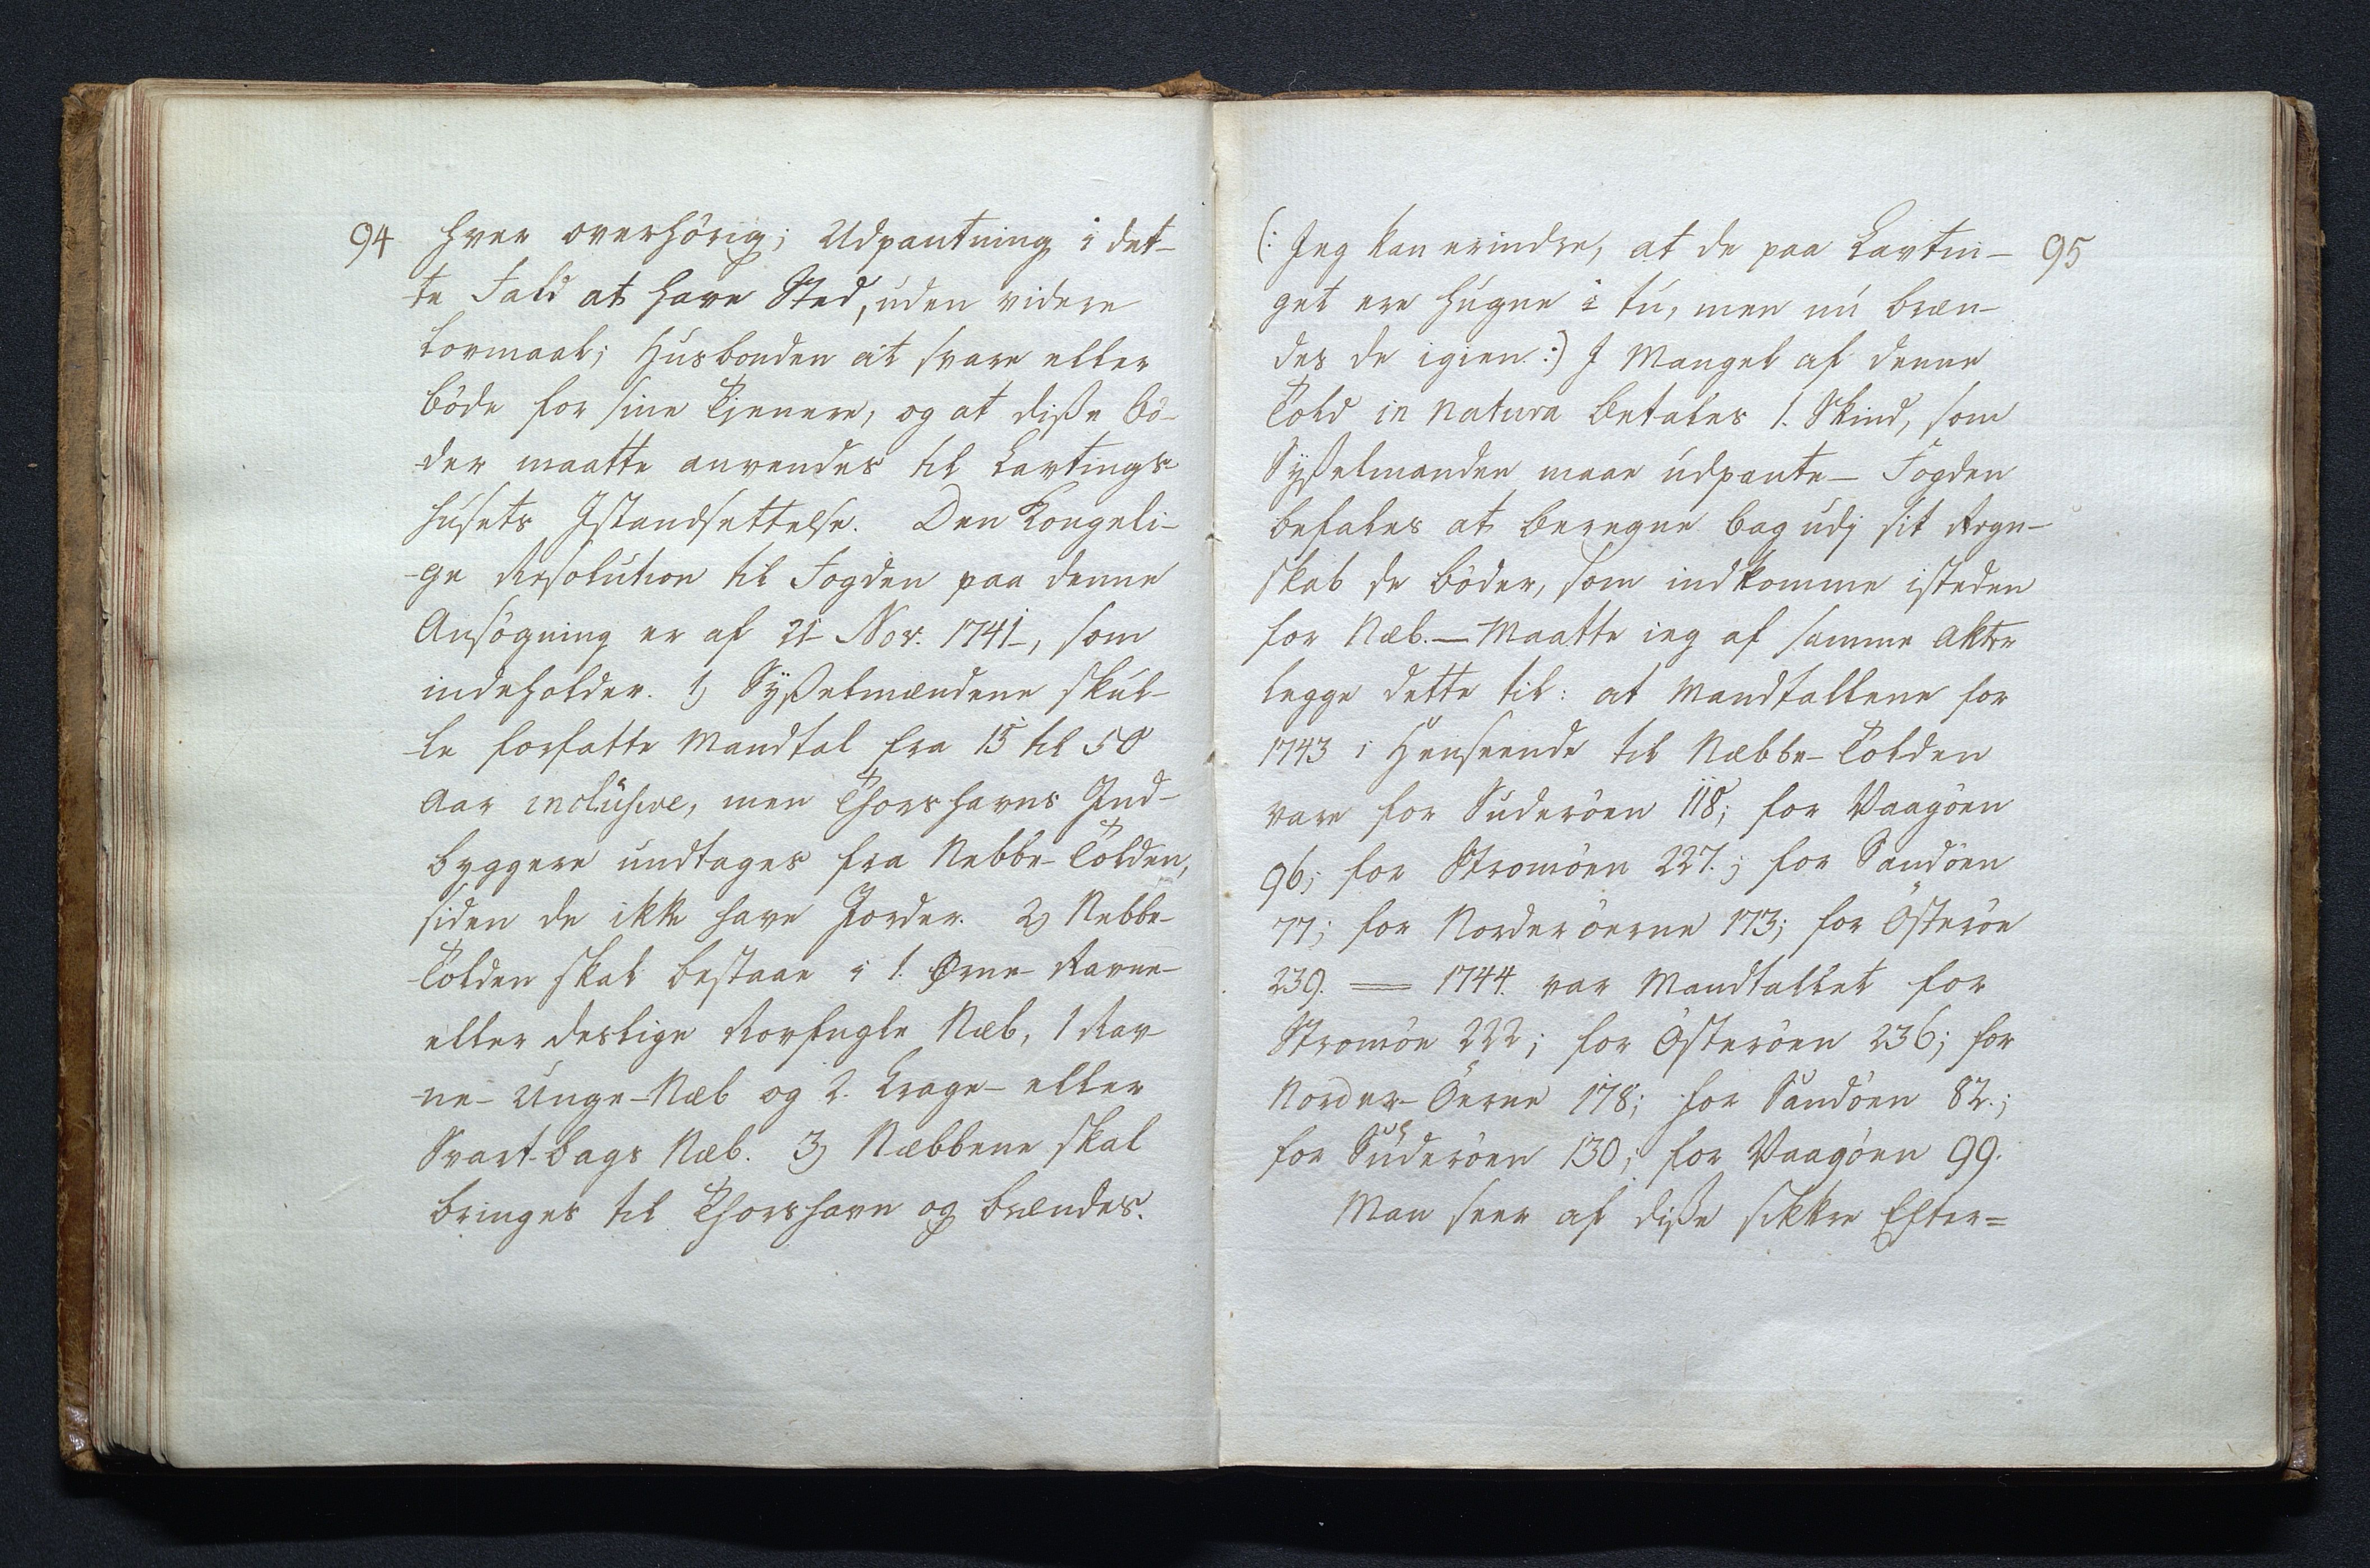 94
hver overhörig; Udpantning i det-
te Fald at have Sted, uden videre
Lovmaal; Husbonden at svare eller
böde for sine Tjenere, og at disse Bö-
der maatte anvendes til Lavtings
husets Istandsettelse. Den Kongeli-
ge Resolution til Fogden paa denne
Ansögning er af 21 Nov. 1741, som
indeholder. 1) Sysselmændene skul-
le forfatte Mandtal fra 15 til 50
Aar inclusive, men Thorshavns Ind-
byggere undtages fra Nebbe-Tolden,
siden de ikke have Jorder. 2) Nebbe-
Tolden skal bestaae i 1. Ørne- Ravne-
eller deslige Rovfugle Næb, 1 Rav
ne-Unge-Næb og 2. Krage- eller
Svart-bags Næb. 3) Næbbene skal
bringes til Thorshavn og brændes.
95
(: Jeg kan erindre, at de paa Lavtin-
get ere hugne i tu, men nu bræn-
des de igien:) I Mangel af denne
Told in natura betales 1. Skind, som
Sysselmanden maae udpante - Fogden
befales at beregne bag udj sit Regn-
skab de Böder, som indkomme isteden
for Næb. — Maatte ieg af samme Akter
legge dette til: at Mandtallene for
1743 i Henseende til Næbbe-Tolden
vare for Suderöen 118; for Vaagöen
96; for Stromöen 227.; for Sandöen
77; for Norderöerne 173; for Österöe
239. — 1744. var Mandtallet for
Stromöe 222; for Österöen 236; for
Norder-Öerne 178; for Sandöen 82.;
for Suderöen 130; for Vaagöen 99.
Man seer af disse sikkre Efter=